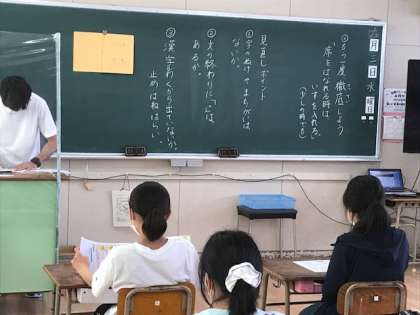 月三日水曜日
◎もう一度徹底しよう
席をはなれる時は、
いすを入れる。
(少しの時でも)
見直しポイント
①字のぬけやまちがいはないか。
②文の終わりに「。」はあるか。
③漢字わくから出てないか。
止めはねはらい。